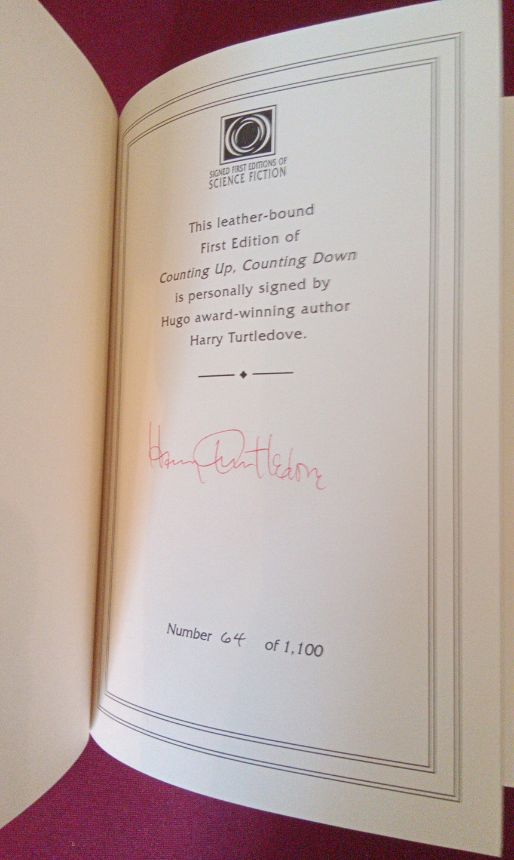 SIGNED FIRST EDITIONS OF
SCIENCE FICTION
This leather-bound
First Edition of
Counting Up, Counting Down
is personally signed by
Hugo award-winning author
Harry Turtledove.
Harry Turtledove
Number 64 of 1,100